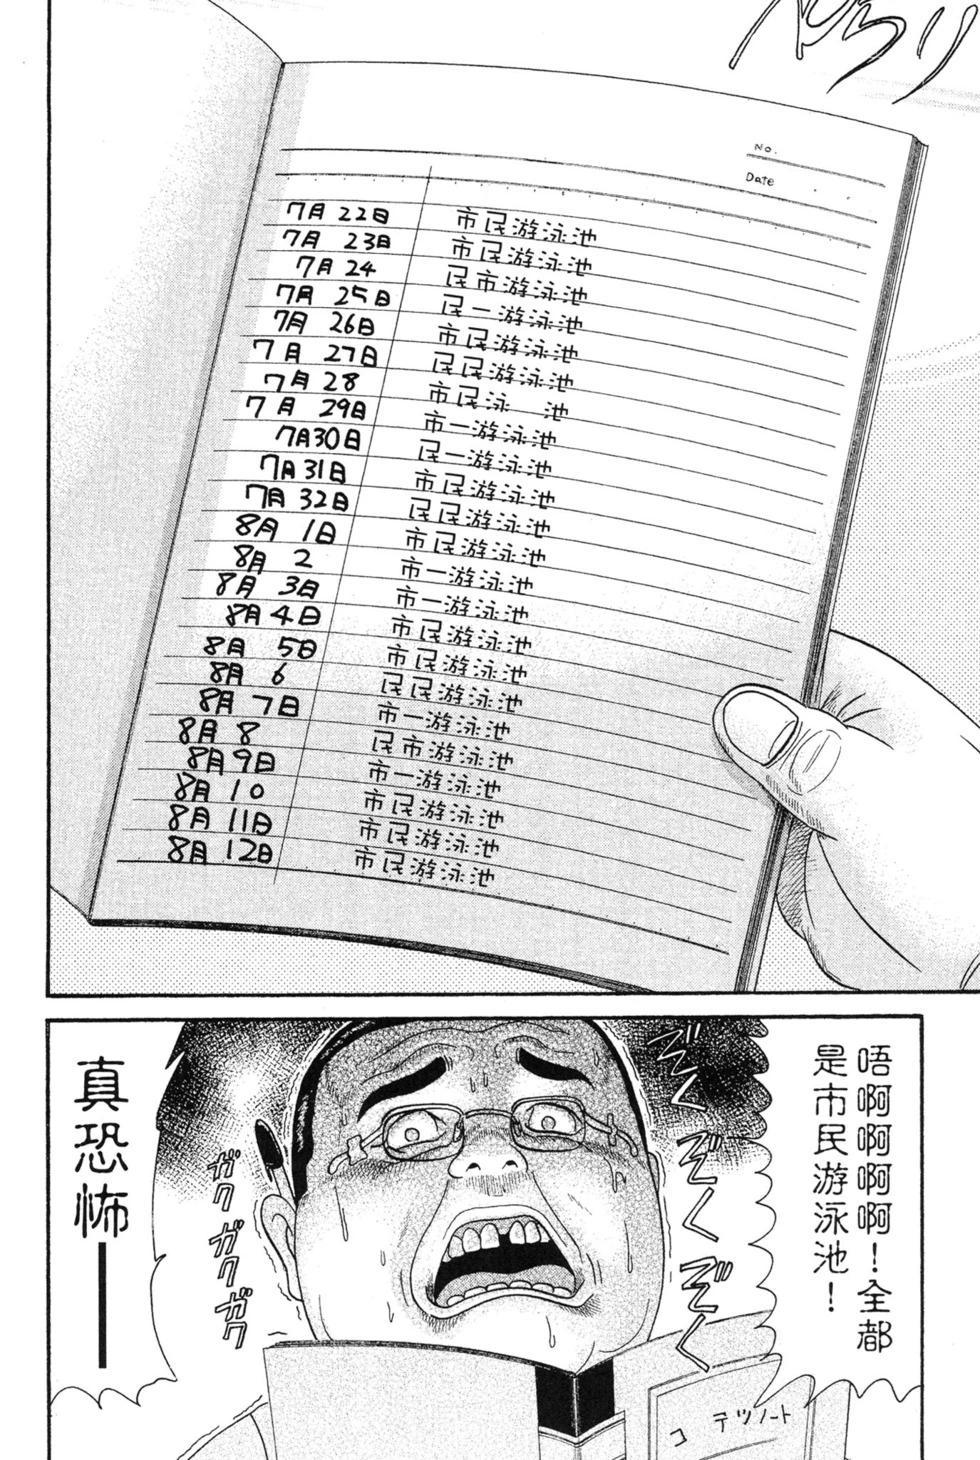 ぺらり
No.
Date
7月 22日 市民游泳池
7月 23日 市民游泳池
7月 24 民市游泳池
7月 25日 民一游泳池
7月 26日 市民游泳池
7月 27日 民民游泳池
7月 28 市民泳 池
7月 29日 市一游泳池
7月30日 民一游泳池
7月31日 市民游泳池
7月 32日 民民游泳池
8月 1日 市民游泳池
8月 2 市一游泳池
8月 3日 市一游泳池
8月4日 市民游泳池
8月 5日 市民游泳池
8月 6 民民游泳池
8月 7日 市一游泳池
8月 8 民市游泳池
8月9日 市一游泳池
8月 10 市民游泳池
8月 11日 市民游泳池
8月 12日 市民游泳池
唔啊啊啊啊！全都
是市民游泳池！
ぞくぞく
ガクガクガク
真恐怖——
コ テツノート